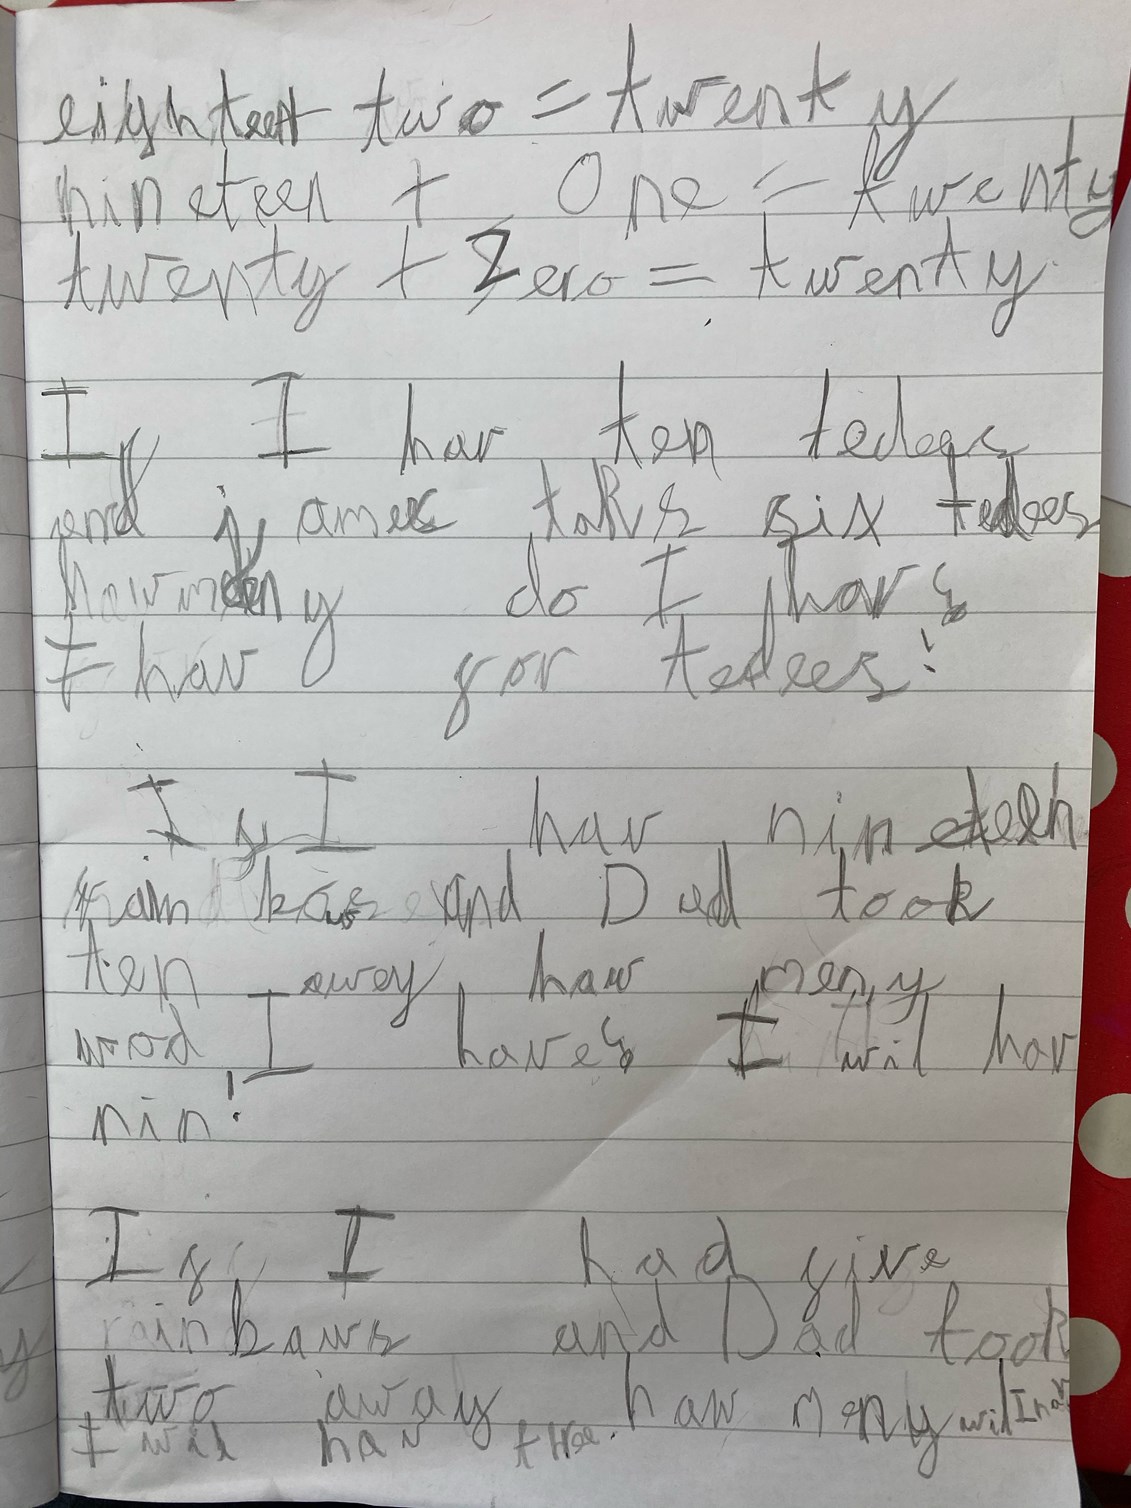 eighteen+ two = twenty
nineteen + One = twenty
twenty + Zero = twenty
If I hav ten tedees
and james taks six tedees
how meny do I hav?
I hav for tedees!
If I hav nineteen
rain and Dad took
ten awey haw meny
wod I have? I wil hav
nin!
If I had five
rainbaws and Dad took
two away haw meny wil I hav
I wil hav tree.